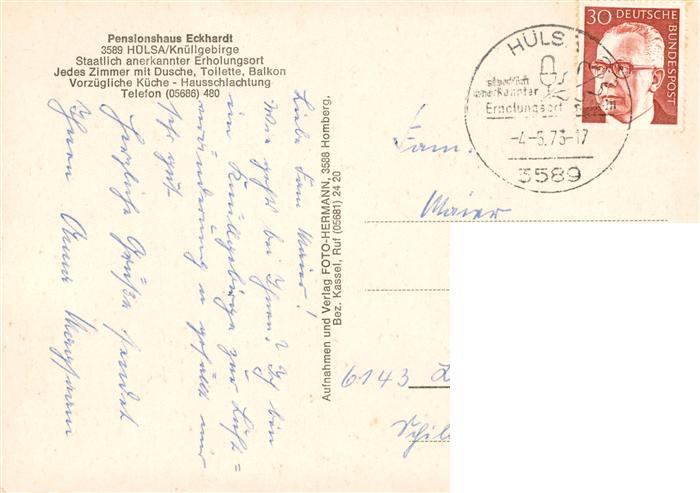 Pensionshaus Eckhardt
3589 HÜLSA/Knüllgebirge
Staatlich anerkannter Erholungsort
Jedes Zimmer mit Dusche, Toilette, Balkon
Vorzügliche Küche - Hausschlachtung
Telefon (05686) 480
Liebe Fam. Maier!
Wie geht's bei Ihnen? Ich bin
im Knüllgebirge zur Luft=
veränderung u. gefällt mir
sehr gut.
Herzliche Grüße sendet
Ihnen Anna
Aufnahmen und Verlag FOTO-HERMANN, 3588 Homberg,
Bez. Kassel, Ruf (05681) 24 20
30 DEUTSCHE BUNDESPOST
HÜLS
staatlich
anerkannter
Erholungsort
-4-5.73-17
3589
Fam.
Maier
6143 L
Schil